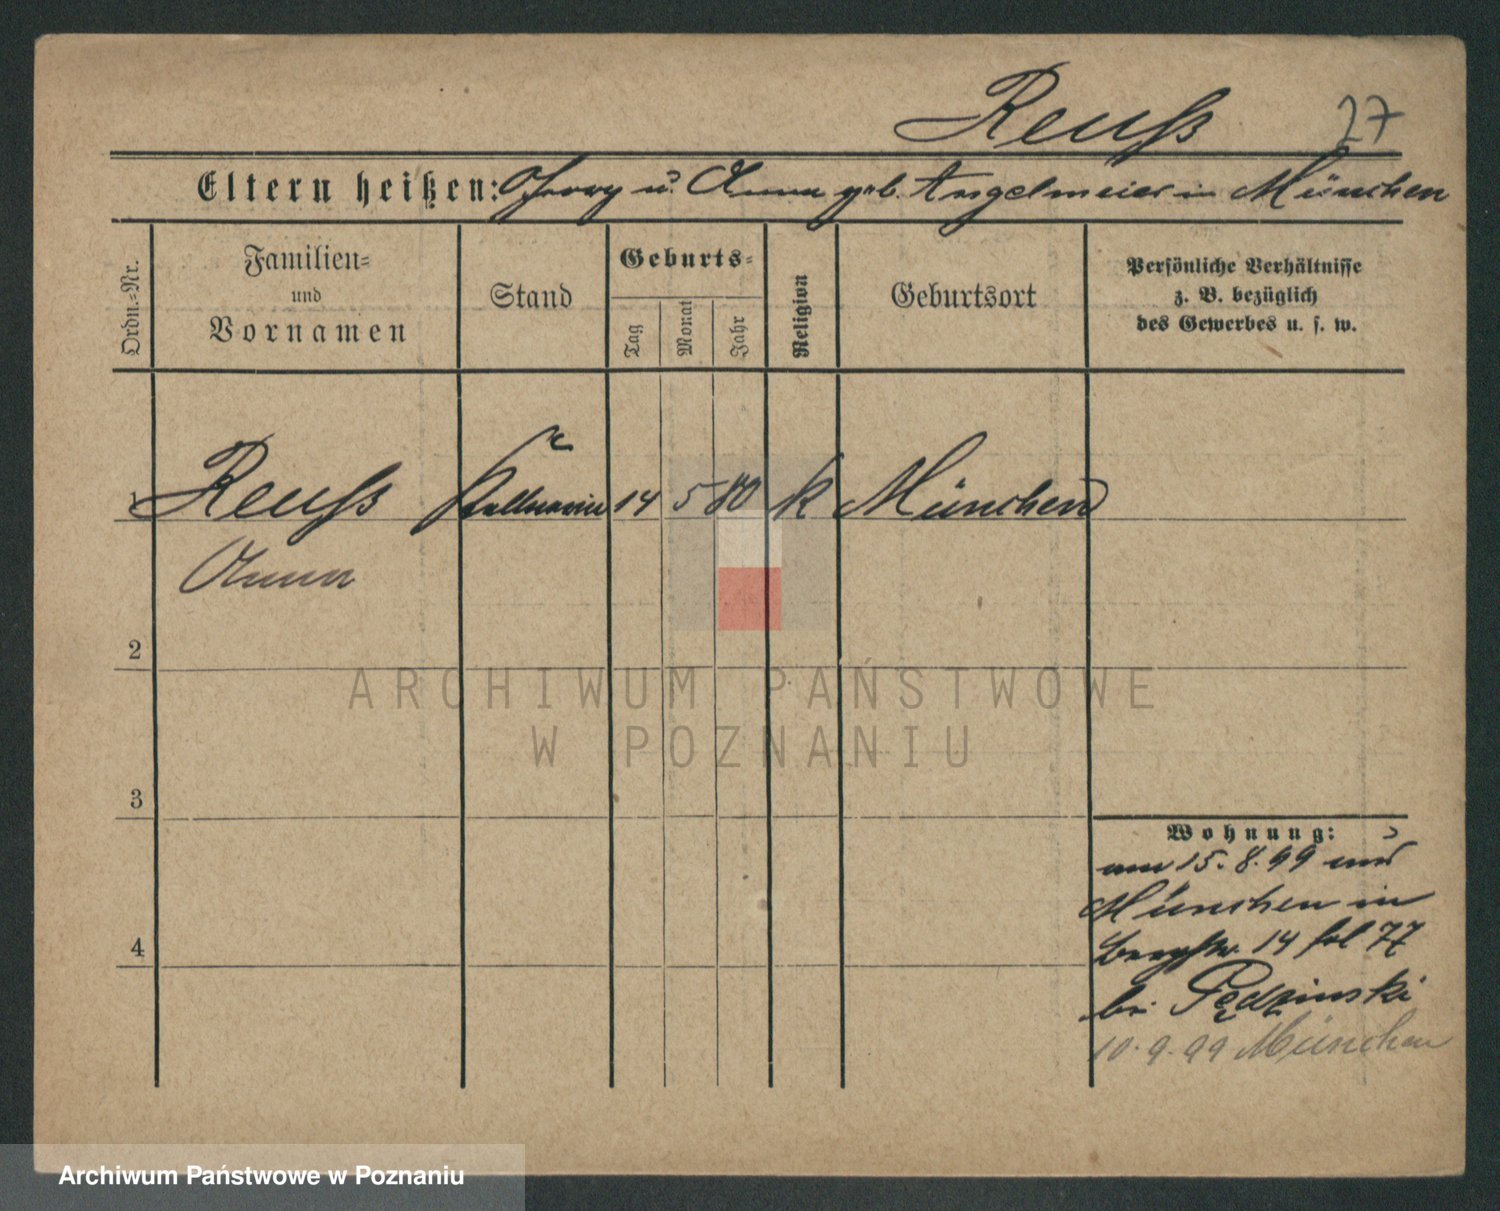 Reuß 27
Eltern heißen: Georg u. Anna geb. Angelmeier in München
Ordn.-Nr.
Familien-
und
Vornamen
Stand
Geburts-
Tag
Monat
Jahr
Religion
Geburtsort
Persönliche Verhältnisse
z. B. bezüglich
des Gewerbes u. s. w.
1 Reuß Kellnerin 14 5 80 k München
Anna
2
ARCHIWUM PAŃSTWOWE
W POZNANIU
3
4
Wohnung:
am 15. 8. 99 aus
München in
Bergstr. 14 fol 77
bei Pędzinski
10. 9. 99 München
Archiwum Państwowe w Poznaniu